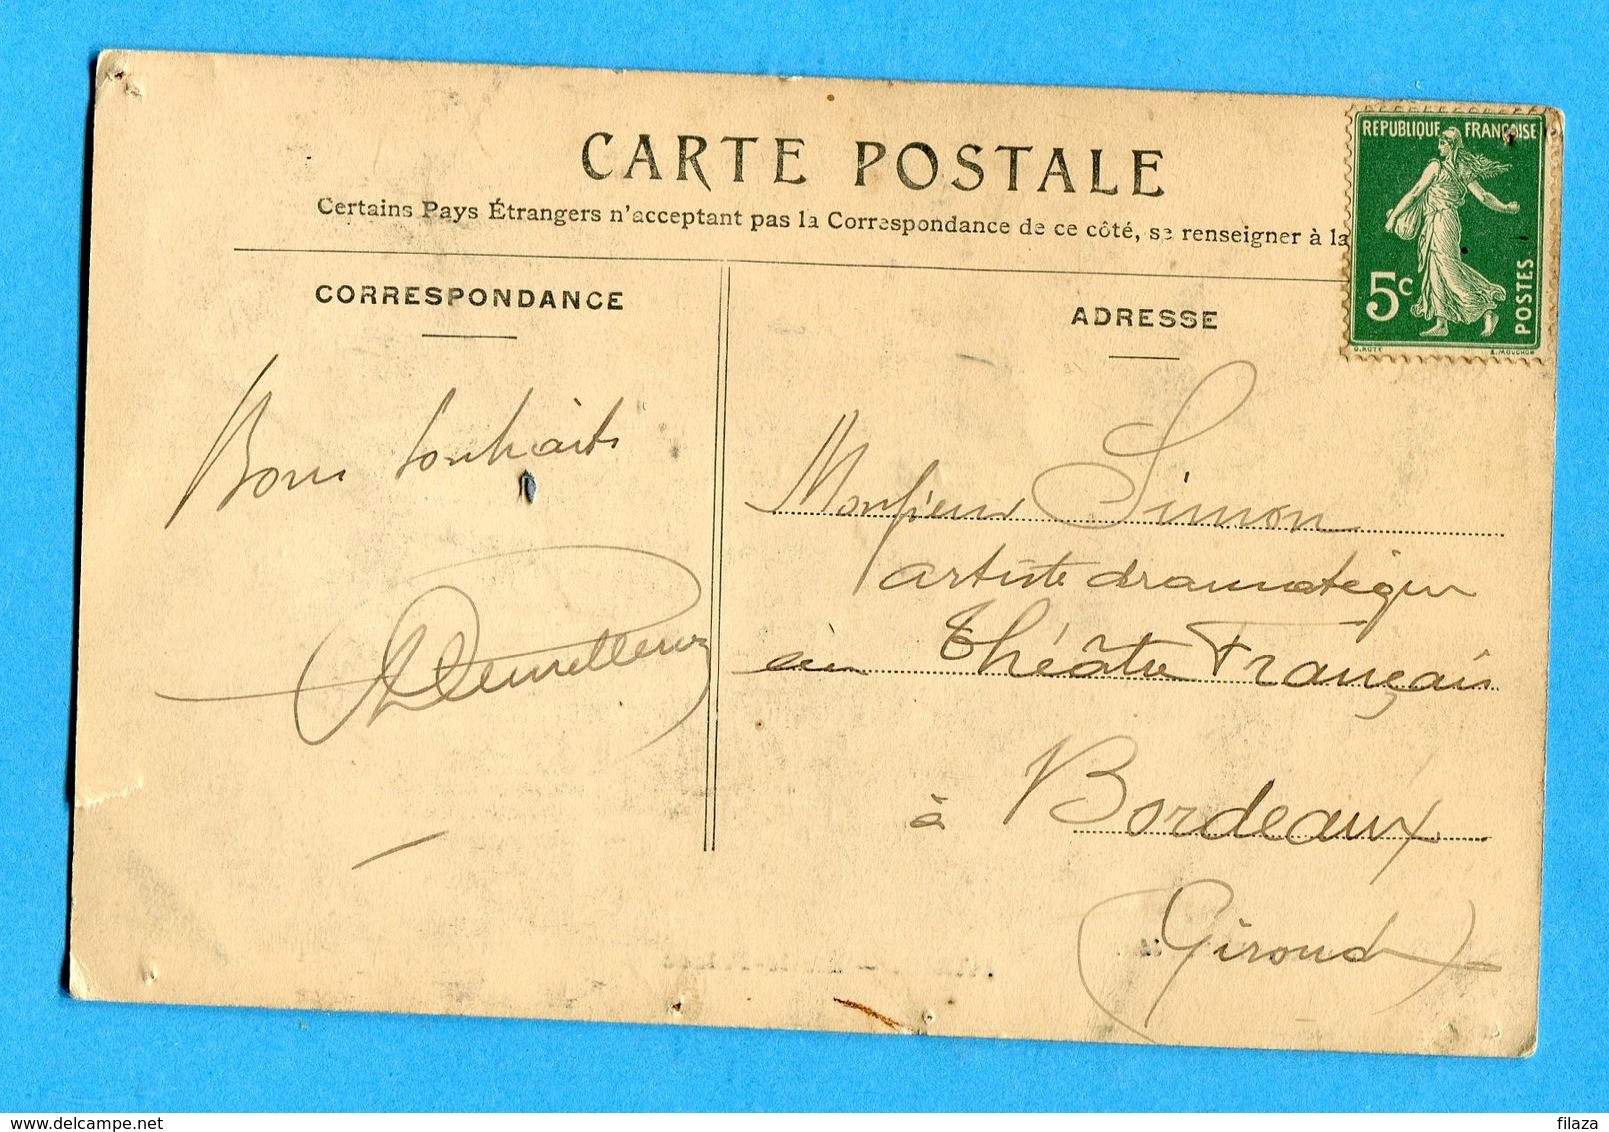 CARTE POSTALE
Certains Pays Étrangers n'acceptant pas la Correspondance de ce côté, se renseigner à la
CORRESPONDANCE
ADRESSE
REPUBLIQUE FRANÇAISE
5c
POSTES
O. ROTY
E. MOUCHON
Bons Souhaits
Monsieur Simon
artiste dramatique
au Théâtre Français
à Bordeaux
(Gironde)
delcampe.net
filaza